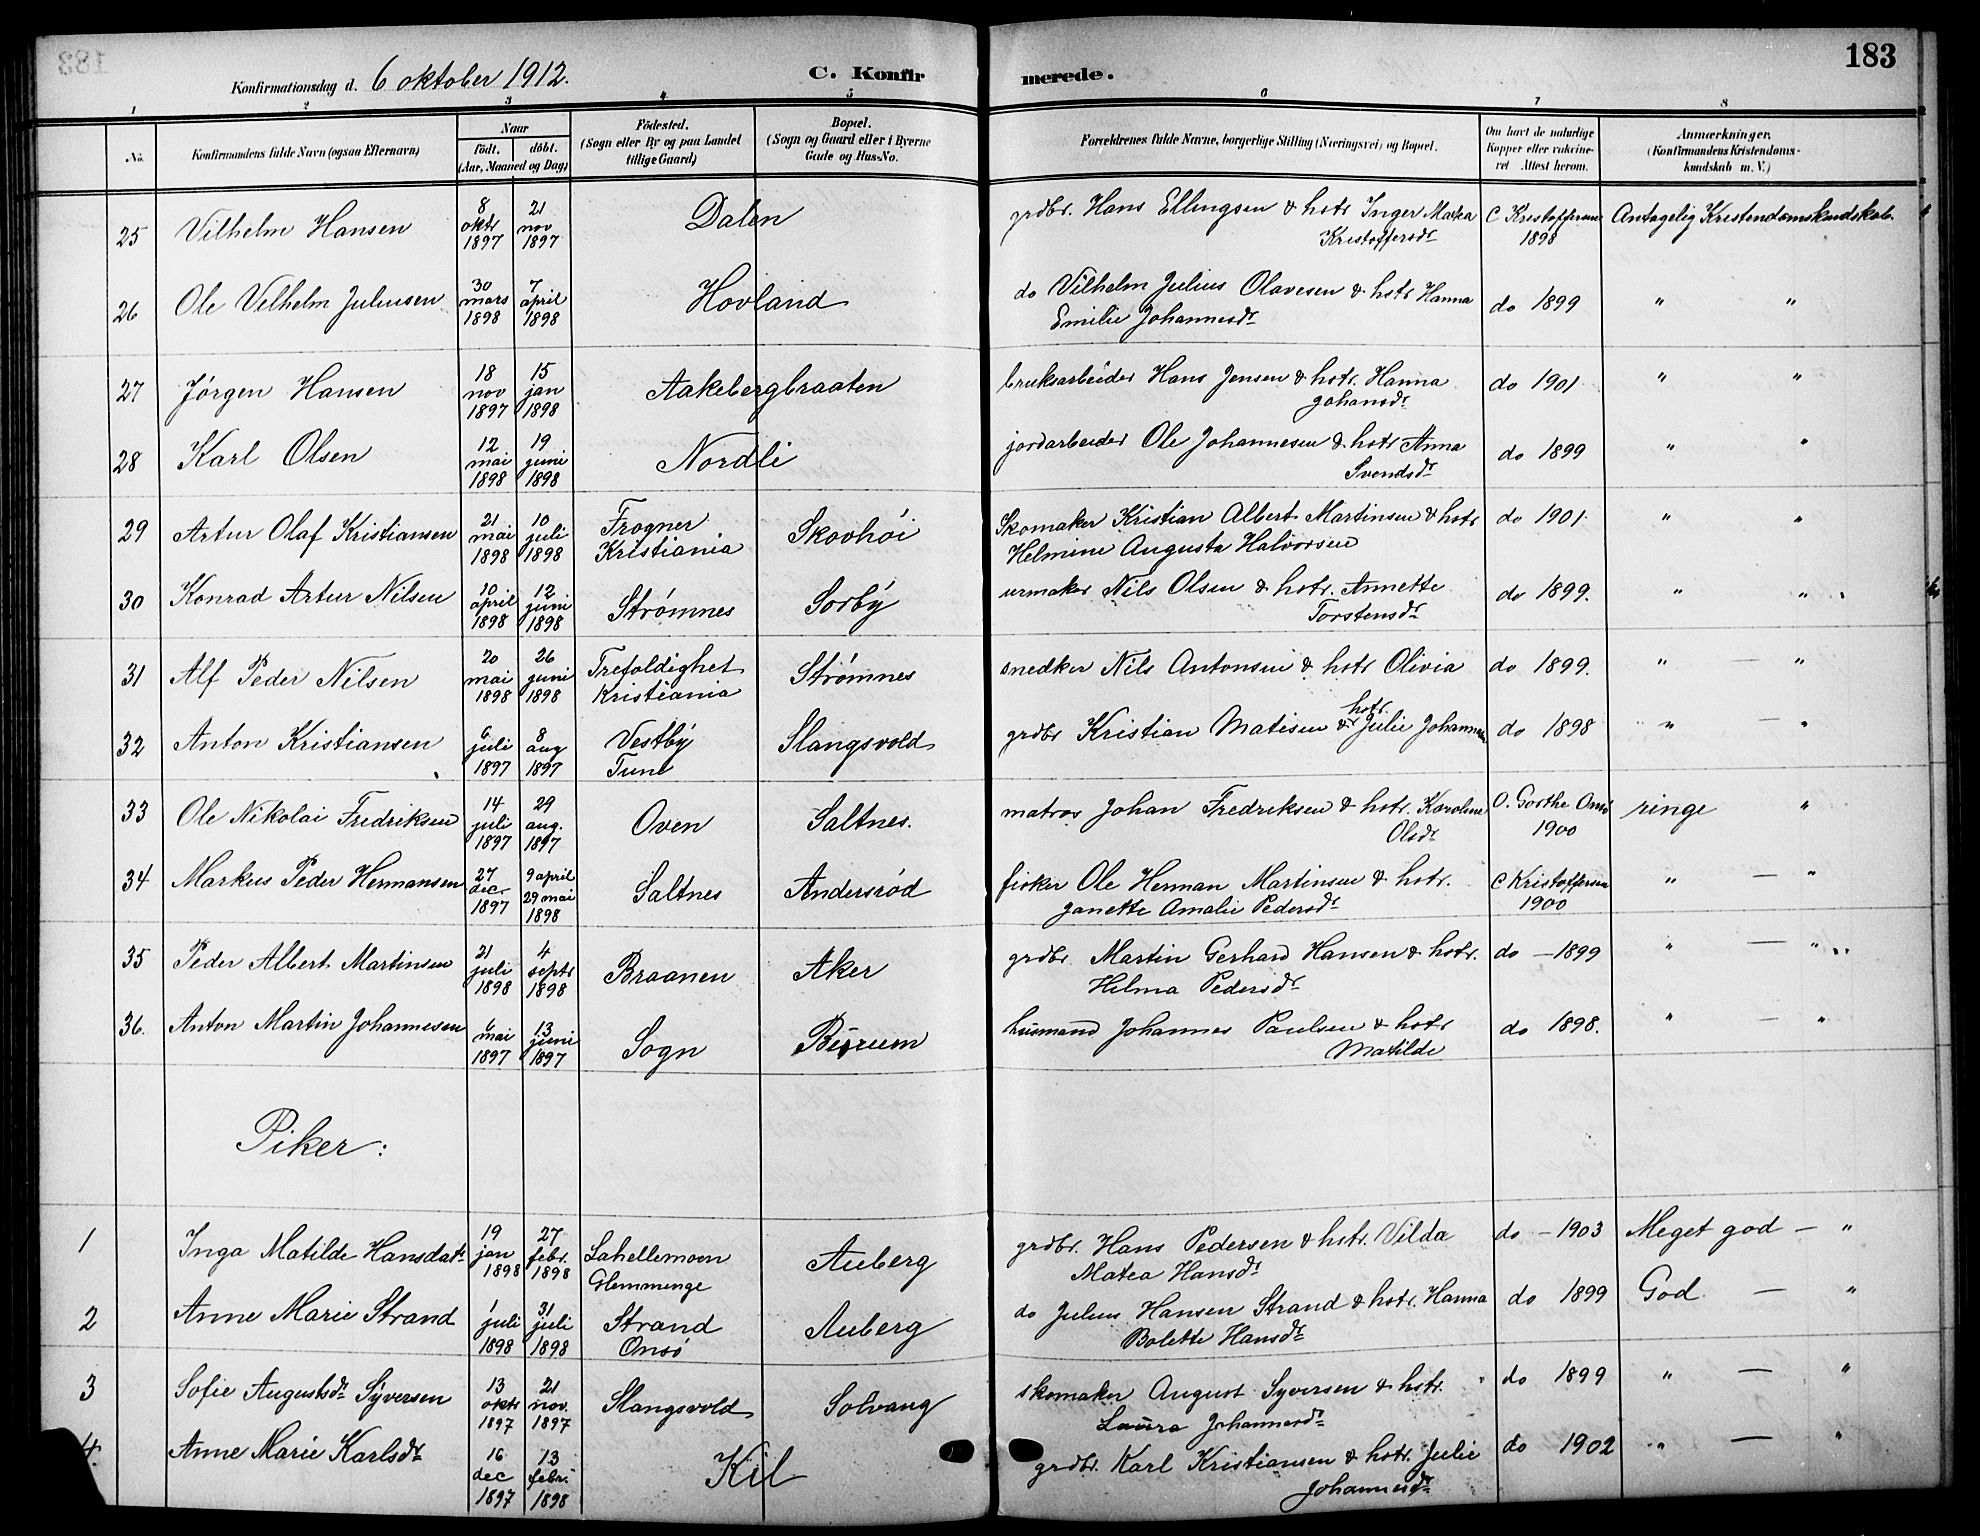 183
Konfirmationsdag d. 6 oktober 1912.
C. Konfirmerede.
1 2 3 4 5 6 7 8
No. Konfirmandens fulde Navn (ogsaa Efternavn)
Naar födt. döbt. (Aar, Maaned og Dag)
Födested. (Sogn eller By og paa Landet tillige Gaard)
Bopæl. (Sogn og Gaard eller i Byerne Gade og Hus-No.
Forældrenes fulde Navne, borgerlige Stilling (Næringsvei) og Bopæl.
Om havt de naturlige Kopper eller vakcineret Attest herom.
Anmærkninger. (Konfirmandens Kristendomskundskab m. V.)
25 Vilhelm Hansen 8 oktr 1897 21 nov 1897 Dalen grdbr. Hans Ellingsen & hstr Inger Matea Kristoffersdr C Kristoffersen 1898 Antagelig Kristendomskundskab.
26 Ole Vilhelm Juliusen 30 mars 1898 7 april 1898 Hovland do Vilhelm Julius Olavesen & hstr Hanna Emilie Johannesdr do 1899 " "
27 Jörgen Hansen 18 nov 1897 15 jan 1898 Aakebergbraaten bruksarbeider Hans Jensen & hstr. Hanna Johansdr do 1901 " "
28 Karl Olsen 12 mai 1898 19 juni 1898 Nordli jordarbeider Ole Johannesen & hstr Anna Svendsdr do 1899 " "
29 Artur Olaf Kristiansen 21 mai 1898 10 juli 1898 Frogner Kristiania Skovhöi Skomaker Kristian Albert Martinsen & hstr Helmine Augusta Halvorsen do 1901 " "
30 Konrad Artur Nilsen 10 april 1898 12 juni 1898 Strømnes Sorby urmaker Nils Olsen & hstr. Annette Torstensdr do 1899. " "
31 Alf Peder Nilsen 20 mai 1898 26 juni 1898 Trefoldighet Kristiania Strømnes snedker Nils Antonsen & hstr Olivia do 1899. " — "
32 Anton Kristiansen 6 juli 1897 8 aug 1897 Vestby Tune Slangsvold grdbr Kristian Matisen & hstr. Julie do 1898 " — "
33 Ole Nikolai Fredriksen 14 juli 1897 29 aug. 1897 Oven Saltnes. matros Johan Fredriksen & hstr. Karoline Olsdr 1900 ringe "
34 Markus Peder Hermansen 27 dec. 1897 9 april 29 mai 1898 Saltnes Andersröd fisker Ole Herman Martinsen & hstr. Janette Amalie Pedersdr C Kristoffersen 1900 " — "
35 Peder Albert Martinsen 21 juli 1898 4 septr 1898 Braanen Aker grdbr. Martin Gerhard Hansen & hstr. Helma Pedersdr do — 1899 " — "
36. Anton Martin Johannesen 6 mai 1897 13 juni 1897 Sogn husmand Johannes Paulsen & hstr Matilde do 1898. " — "
Piker:
1 Inga Matilde Hansdatr 19 jan 1898 27 febr. 1898 Lahellemoen Glemminge Auberg grdbr. Hans Pedersen & hstr. Vilda Matea Hansdr do — 1903 Meget god — "
2 Anne Marie Strand 1 juli 1898 31 juli 1898 Strand Onsö Auberg do Julius Hansen Strand & hstr. Hanna Bolette Hansdr do 1899 God — "
3 Sofie Augustsdr Syversen 13 oktr 1897 21 nov. 1897 Slangsvold Solvang skomaker August Syversen & hstr. Laura Johannesdr do 1899 " — "
4. Anne Marie Karlsdr 16 dec 1897 13 febr. 1898 Kil grdbr. Karl Kristiansen & hstr. Julie Johannesdr do 1902 " — "